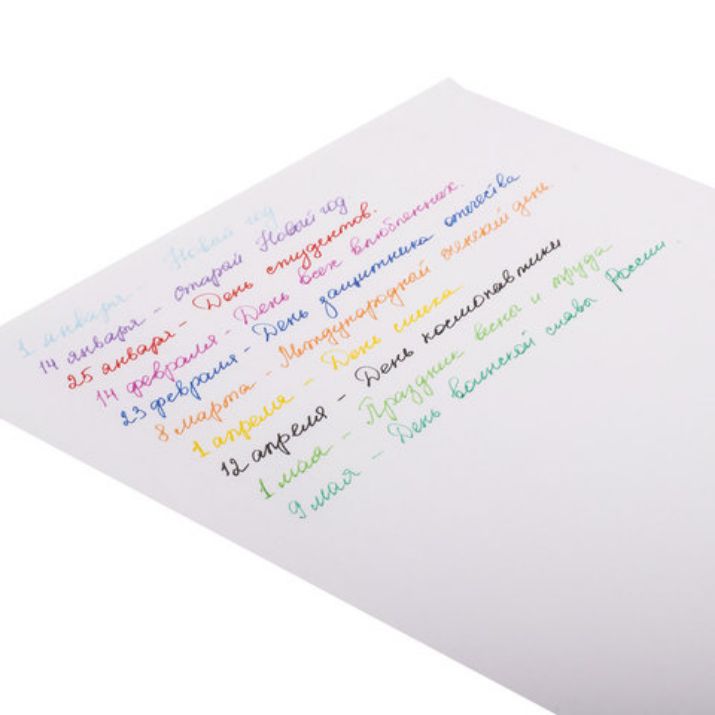 1 января - Новый год
14 января - старый Новый год
25 января - День студентов.
14 февраля - День всех влюбленных.
23 февраля - День защитника отечества
8 марта - Международный женский день
1 апреля - День смеха
12 апреля - День космонавтики
1 мая - Праздник весны и труда
9 мая - День воинской славы России.